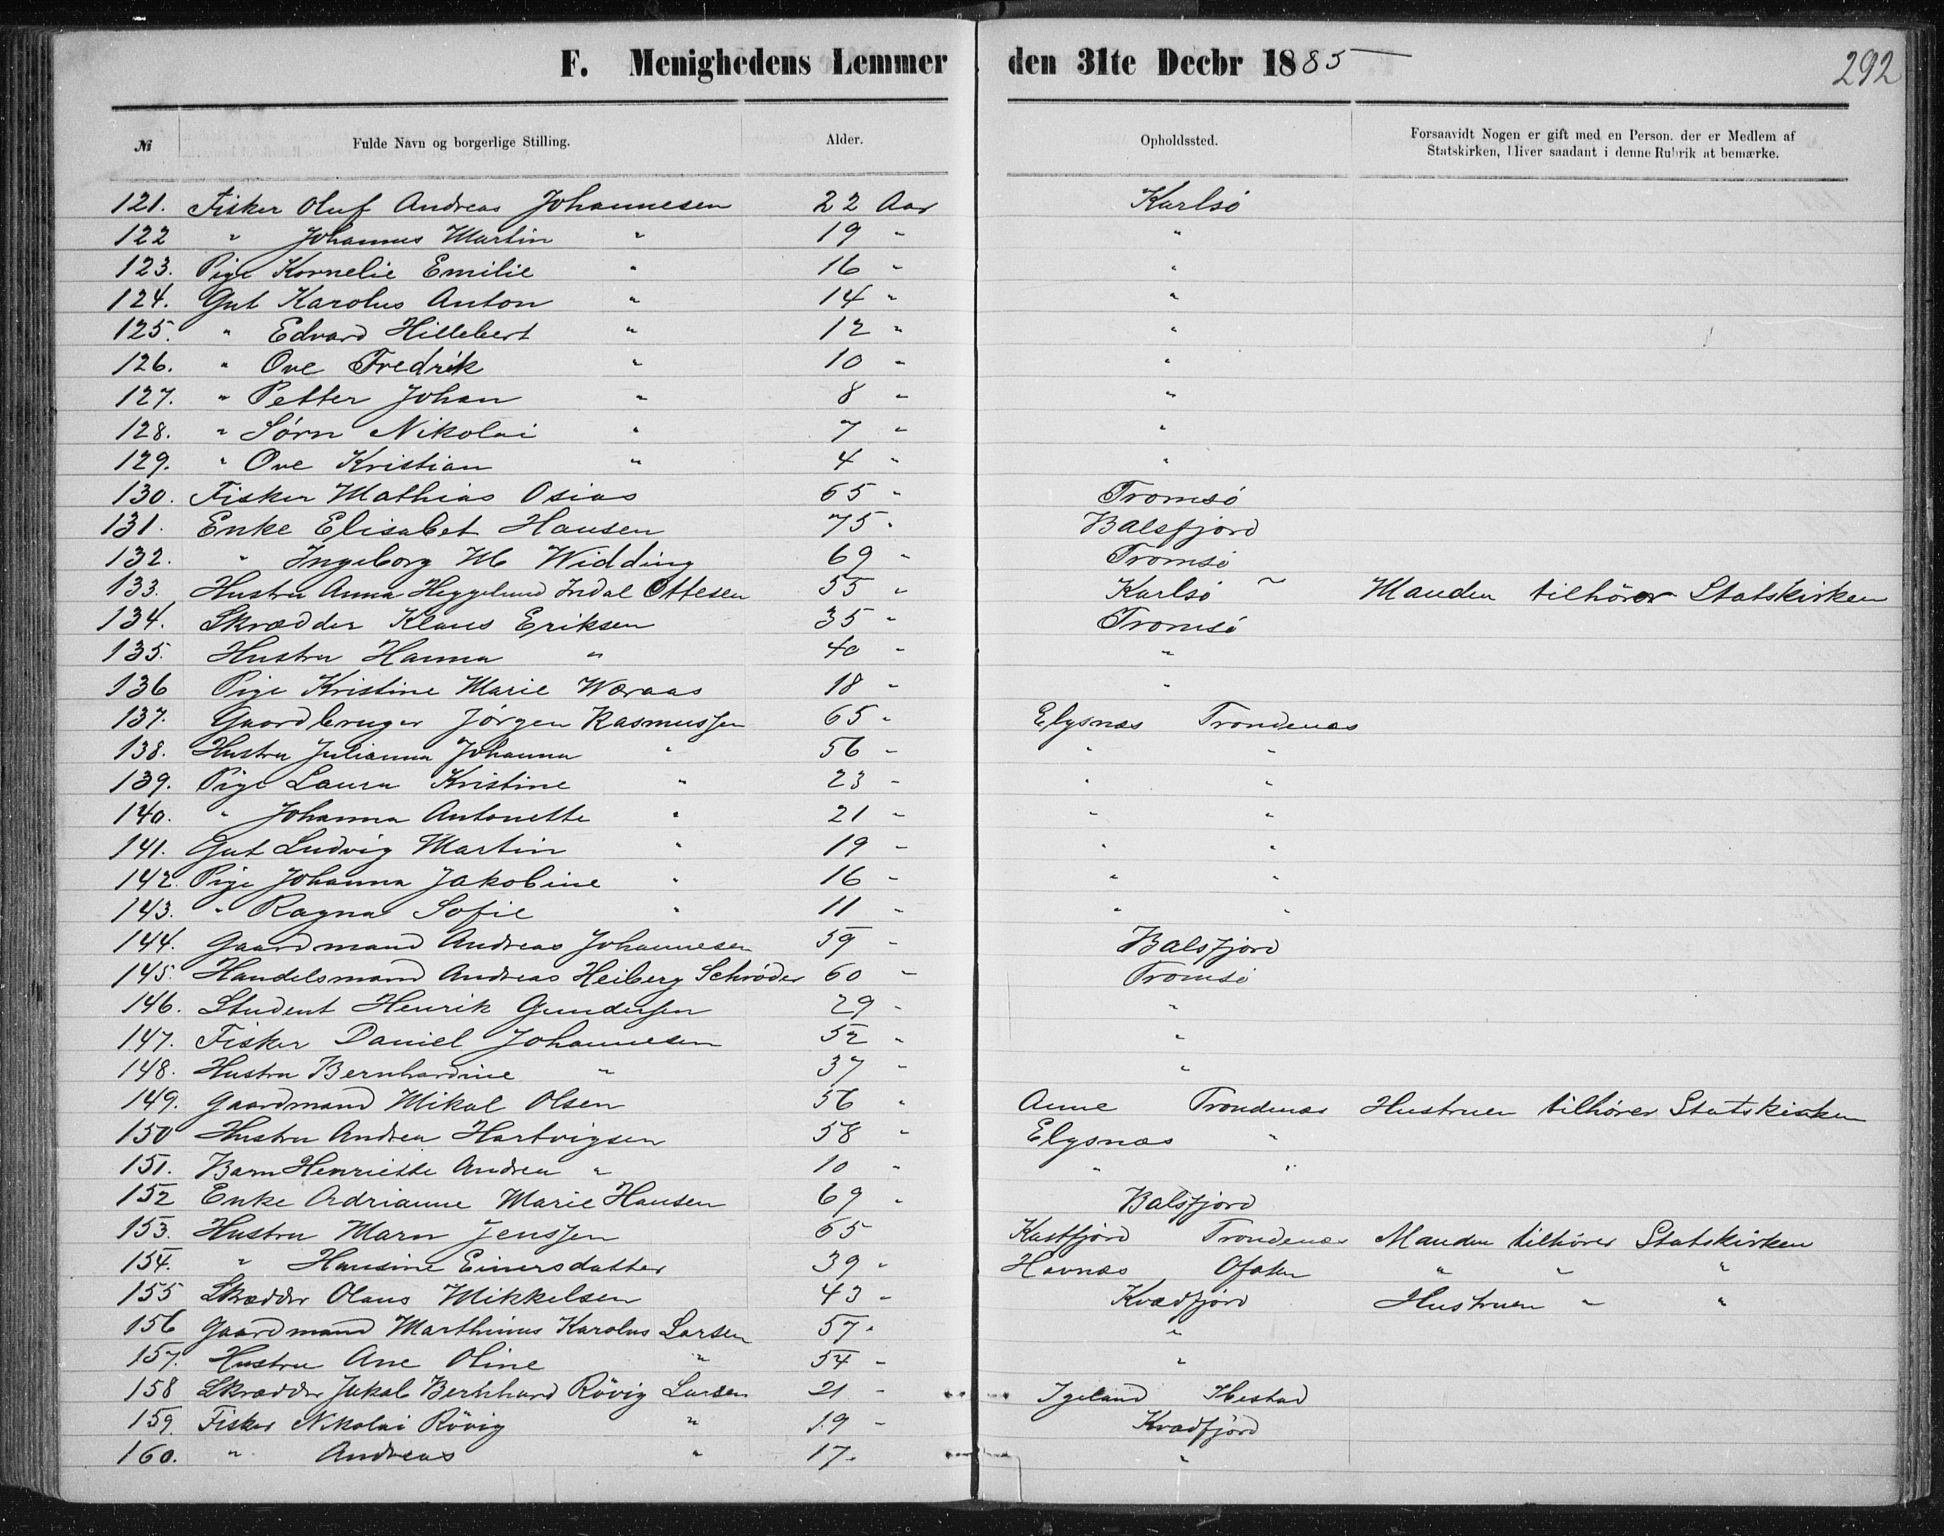 F. Menighedens Lemmer den 31te Decbr 1885 292
№ Fulde Navn og borgerlige Stilling. Alder. Opholdssted. Forsaavidt Nogen er gift med en Person. der er Medlem af
Statskirken, bliver saadant i denne Rubrik at bemærke.
121. Fisker Oluf Andreas Johannesen 22 Aar Karlsö
122 " Johannes Martin " 19 " "
123. Pige Kornelie Emilie " 16 " "
124. Gut Karolus Anton " 14 " "
125. " Edvard Hillebert " 12 " "
126. " Ove Fredrik " 10 " "
127. " Petter Johan " 8 " "
128. " Sørn Nikolai " 7 " "
129. " Ove Kristian " 4 " "
130. Fisker Mathias Osias 65 " Tromsö
131. Enke Elisabet Hansen 75 " Balsfjord
132. " Ingeborg M Widding 69 " Tromsö
133. Hustru Anna Heggelund Indal Ottesen 55 " Karlsö ~ Manden tilhører Statskirken
134. Skrædder Klaus Eriksen 35 " Tromsö
135. Hustru Hanna " 40 " "
136 Pige Kristine Marie Wæraas 18 " "
137. Gaardbruger Jörgen Rasmussen 65 " Elgsnæs Trondenæs
138. Hustru Julianna Johanna " 56 " " "
139. Pige Laura Kristine " 23 " " "
140. " Johanna Antonette " 21 " " "
141. Gut Ludvig Martin " 19 " " "
142. Pige Johanna Jakobine " 16 " " "
143. " Ragna Sofie " 11 " " "
144. Gaardmand Andreas Johannesen 59 " Balsfjord
145. Handelsmand Andreas Heiberg Schrøder 60 " Tromsö
146. Student Henrik Gundersen 29 " "
147. Fisker Daniel Johannesen 52 " "
148. Hustru Bernhardine " 37 " "
149. Gaardmand Mikal Olsen 56 " Aune Trondenæs Hustruen tilhører Statskirken
150 Hustru Andrea Hartvigsen 58 " Elgsnæs "
151. Barn Henriette Andrea " 10 " " "
152 Enke Adrianne Marie Hansen 69 " Balsfjord
153. Hustru Marn Jenssen 65 Kastfjord Trondenæs Manden tilhører Statskirken
154. " Hansine Einersdatter 39 " Havnæs Ofoten " " "
155 Skrædder Olaus Mikkelsen 43 " Kvædfjord Hustruen " "
156 Gaardmand Marthinus Karolus Larsen 57 " "
157. Hustru Ane Oline " 54 " "
158 Skrædder Jakob Bernhard Rövig Larsen 21 " Igeland
159. Fisker Nikolai Rövig " 19 " Kvædfjord
160. " Andreas " 17 " "